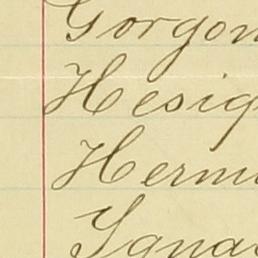 Gorgon
Hesig
Herm
Ignac